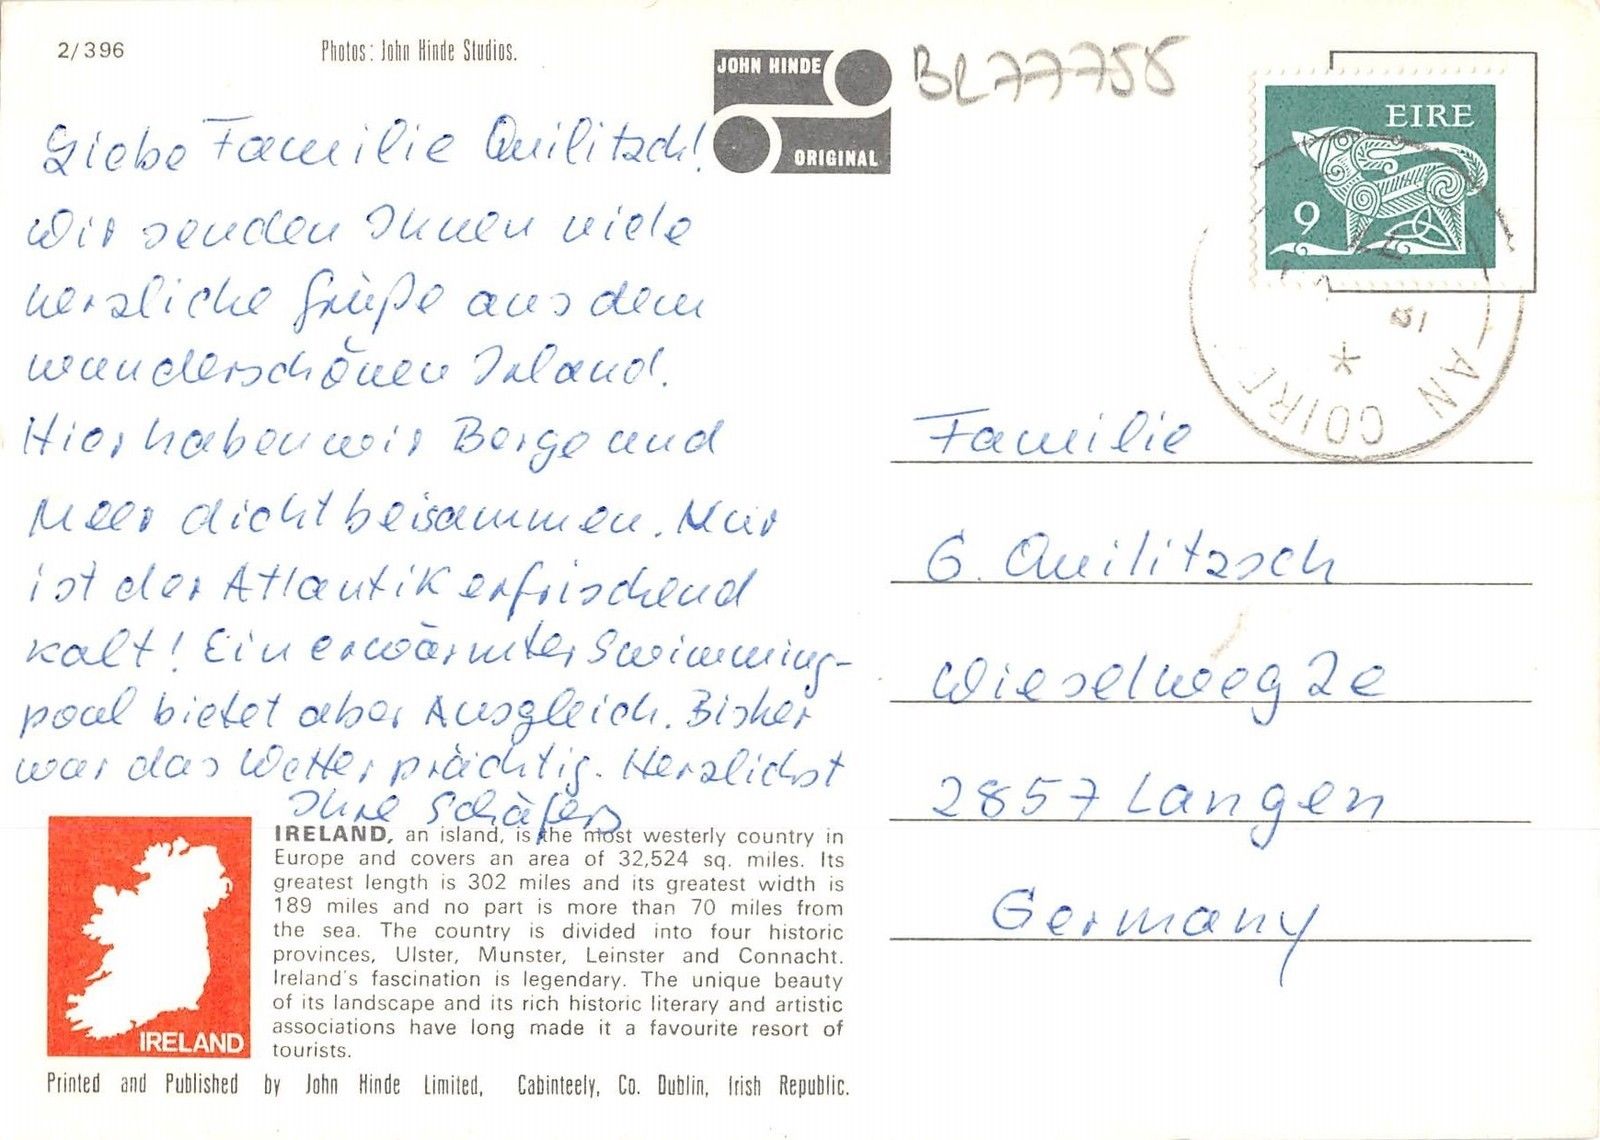 2/396
Photos: John Hinde Studios.
JOHN HINDE
ORIGINAL
BL77755
EIRE
9
81
AN COIRE
Liebe Familie Quilitzsch!
Wir senden Ihnen viele
herzliche Grüße aus dem
wunderschönen Irland.
Hier haben wir Berge und
Meer dicht beisammen. Nur
ist der Atlantik erfrischend
kalt! Ein erwärmter Swimming-
pool bietet aber Ausgleich. Bisher
war das Wetter prächtig. Herzlichst
Ihre Schäfers
Familie
G. Quilitzsch
Wieselweg 2e
2857 Langen
Germany
IRELAND
IRELAND, an island, is the most westerly country in
Europe and covers an area of 32,524 sq. miles. Its
greatest length is 302 miles and its greatest width is
189 miles and no part is more than 70 miles from
the sea. The country is divided into four historic
provinces, Ulster, Munster, Leinster and Connacht.
Ireland's fascination is legendary. The unique beauty
of its landscape and its rich historic literary and artistic
associations have long made it a favourite resort of
tourists.
Printed and Published by John Hinde Limited, Cabinteely, Co. Dublin, Irish Republic.